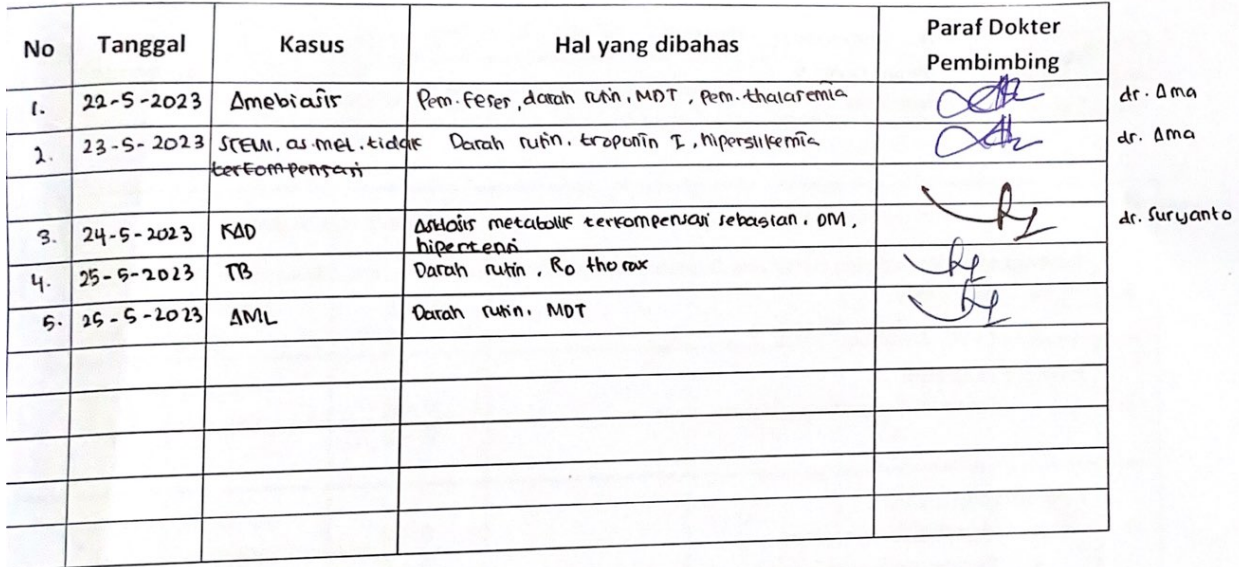 No Tanggal Kasus Hal yang dibahas Paraf Dokter Pembimbing
1. 22-5-2023 Amebiasis Pem. feses, darah rutin, MDT, Pem. thalasemia dr. Ama
2. 23-5-2023 STEMI, as. met. tidak Darah rutin, troponin I, hiperglikemia dr. Ama
terkompensasi
3. 24-5-2023 KAD Asidosis metabolik terkompensasi sebagian, DM, dr. Suryanto
hipertensi
4. 25-5-2023 TB Darah rutin, Ro thorax
5. 25-5-2023 AML Darah rutin, MDT